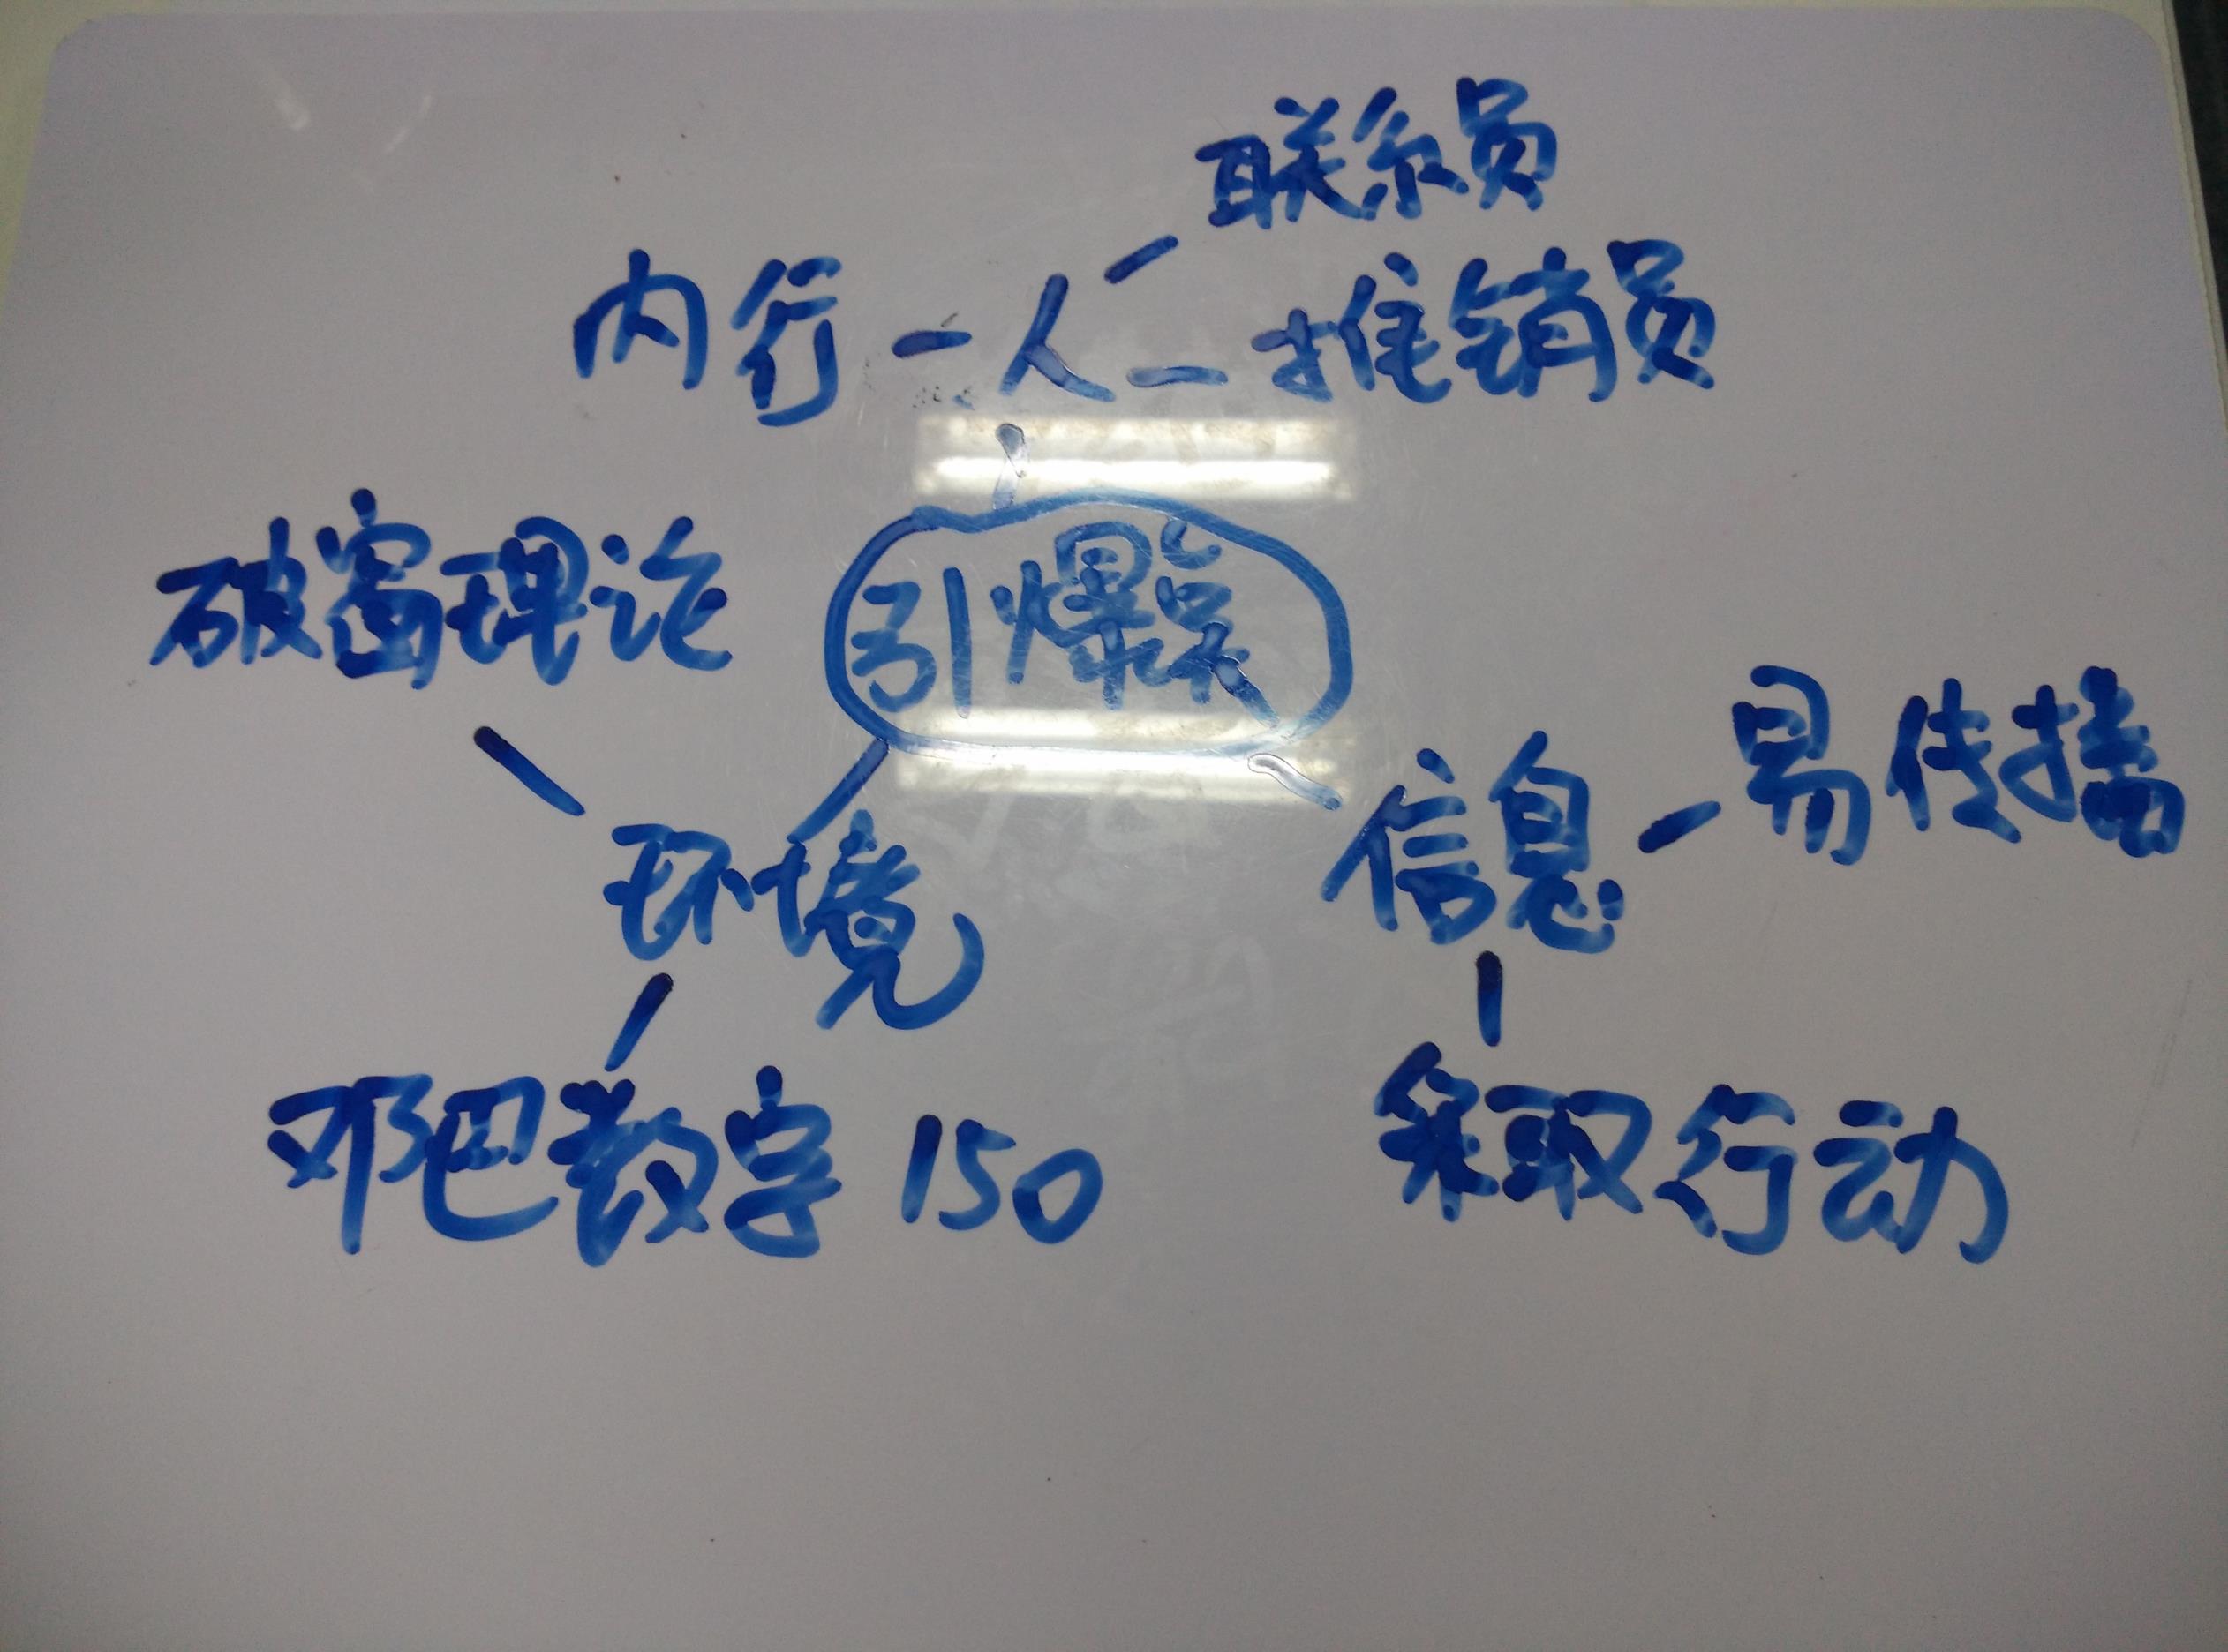 联系员
内行 - 人 - 推销员
破窗理论
引爆点
信息 - 易传播
环境
邓巴数字 150
采取行动